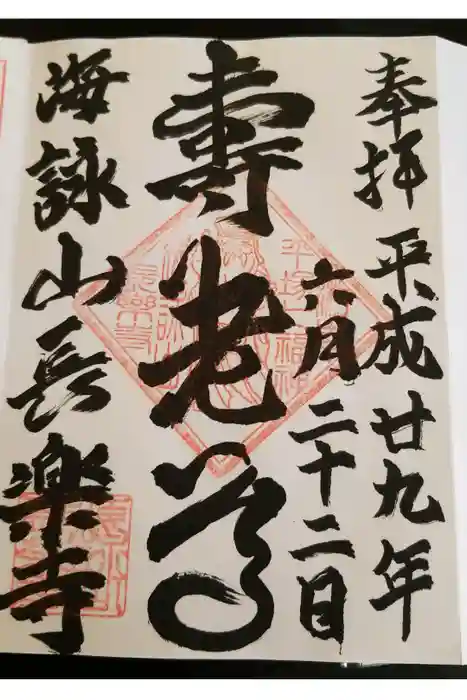 奉拝 平成廿九年
六月二十二日
壽老尊
海詠山長樂寺